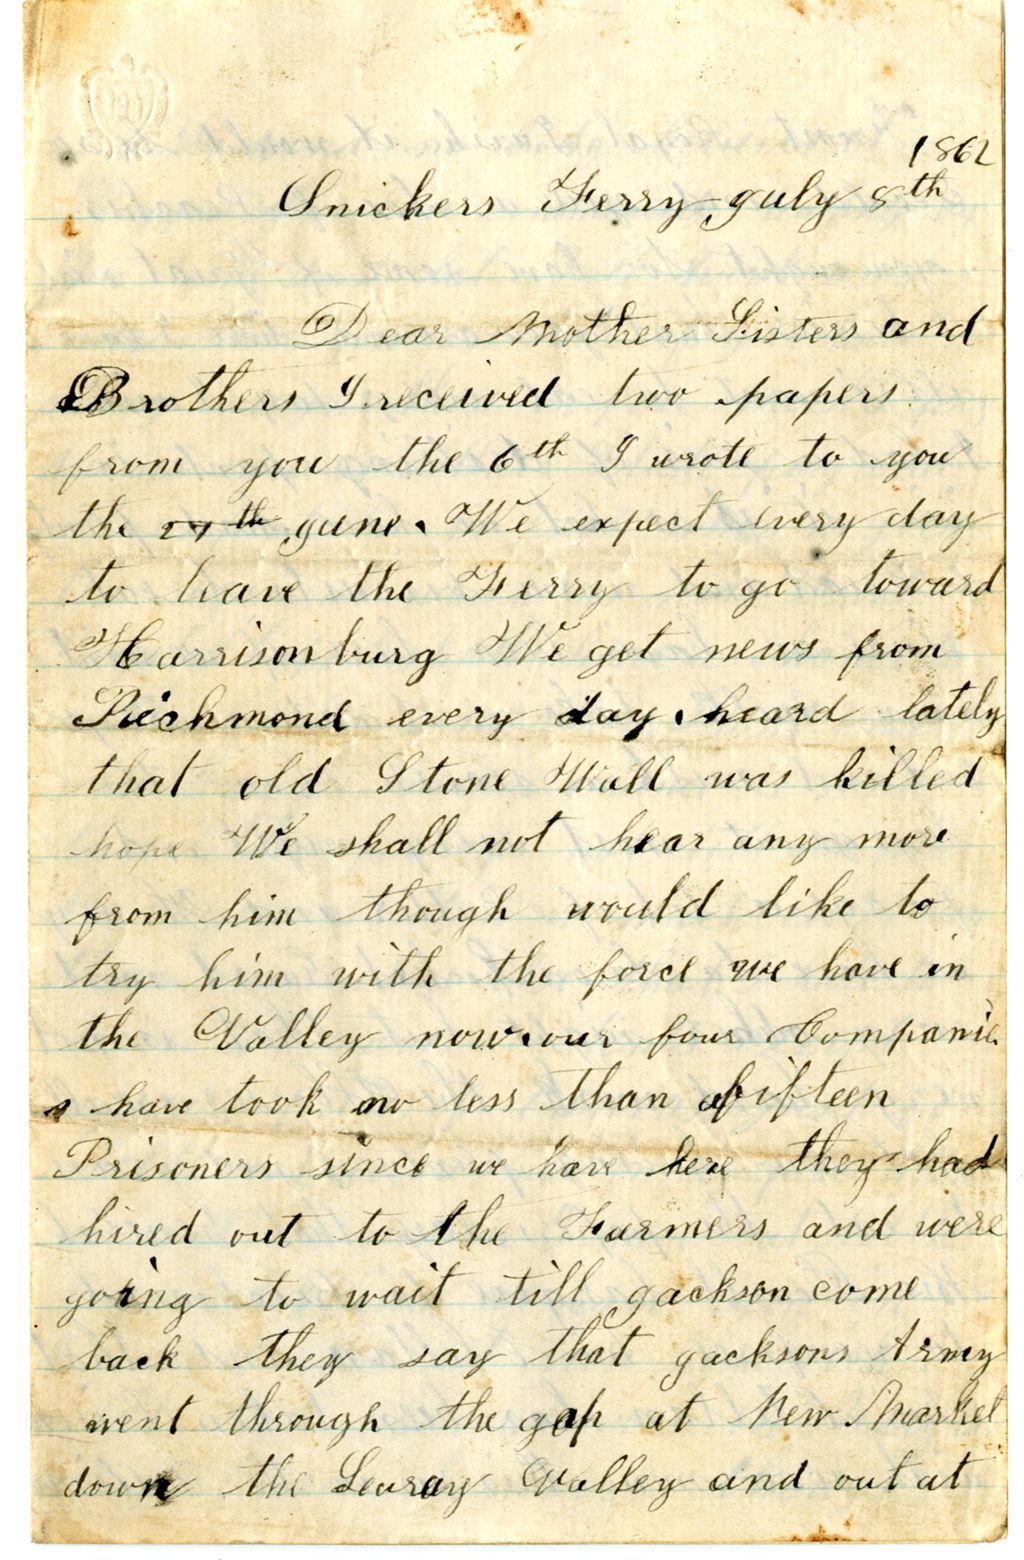 1862
Snickers Ferry july 8th
Dear Mother Sisters and
Brothers I received two papers
from you the 6th I wrote to you
the 27th june. We expect every day
to leave the Ferry to go toward
Harrisonburg We get news from
Richmond every day. heard lately
that old Stone Wall was killed
hope We shall not hear any more
from him though would like to
try him with the force we have in
the Valley now. our four Companie
s have took no less than fifteen
Prisoners since we have here they had
hired out to the Farmers and were
going to wait till jackson come
back they say that jacksons Army
went through the gap at New Market
down the Leuray Valley and out at